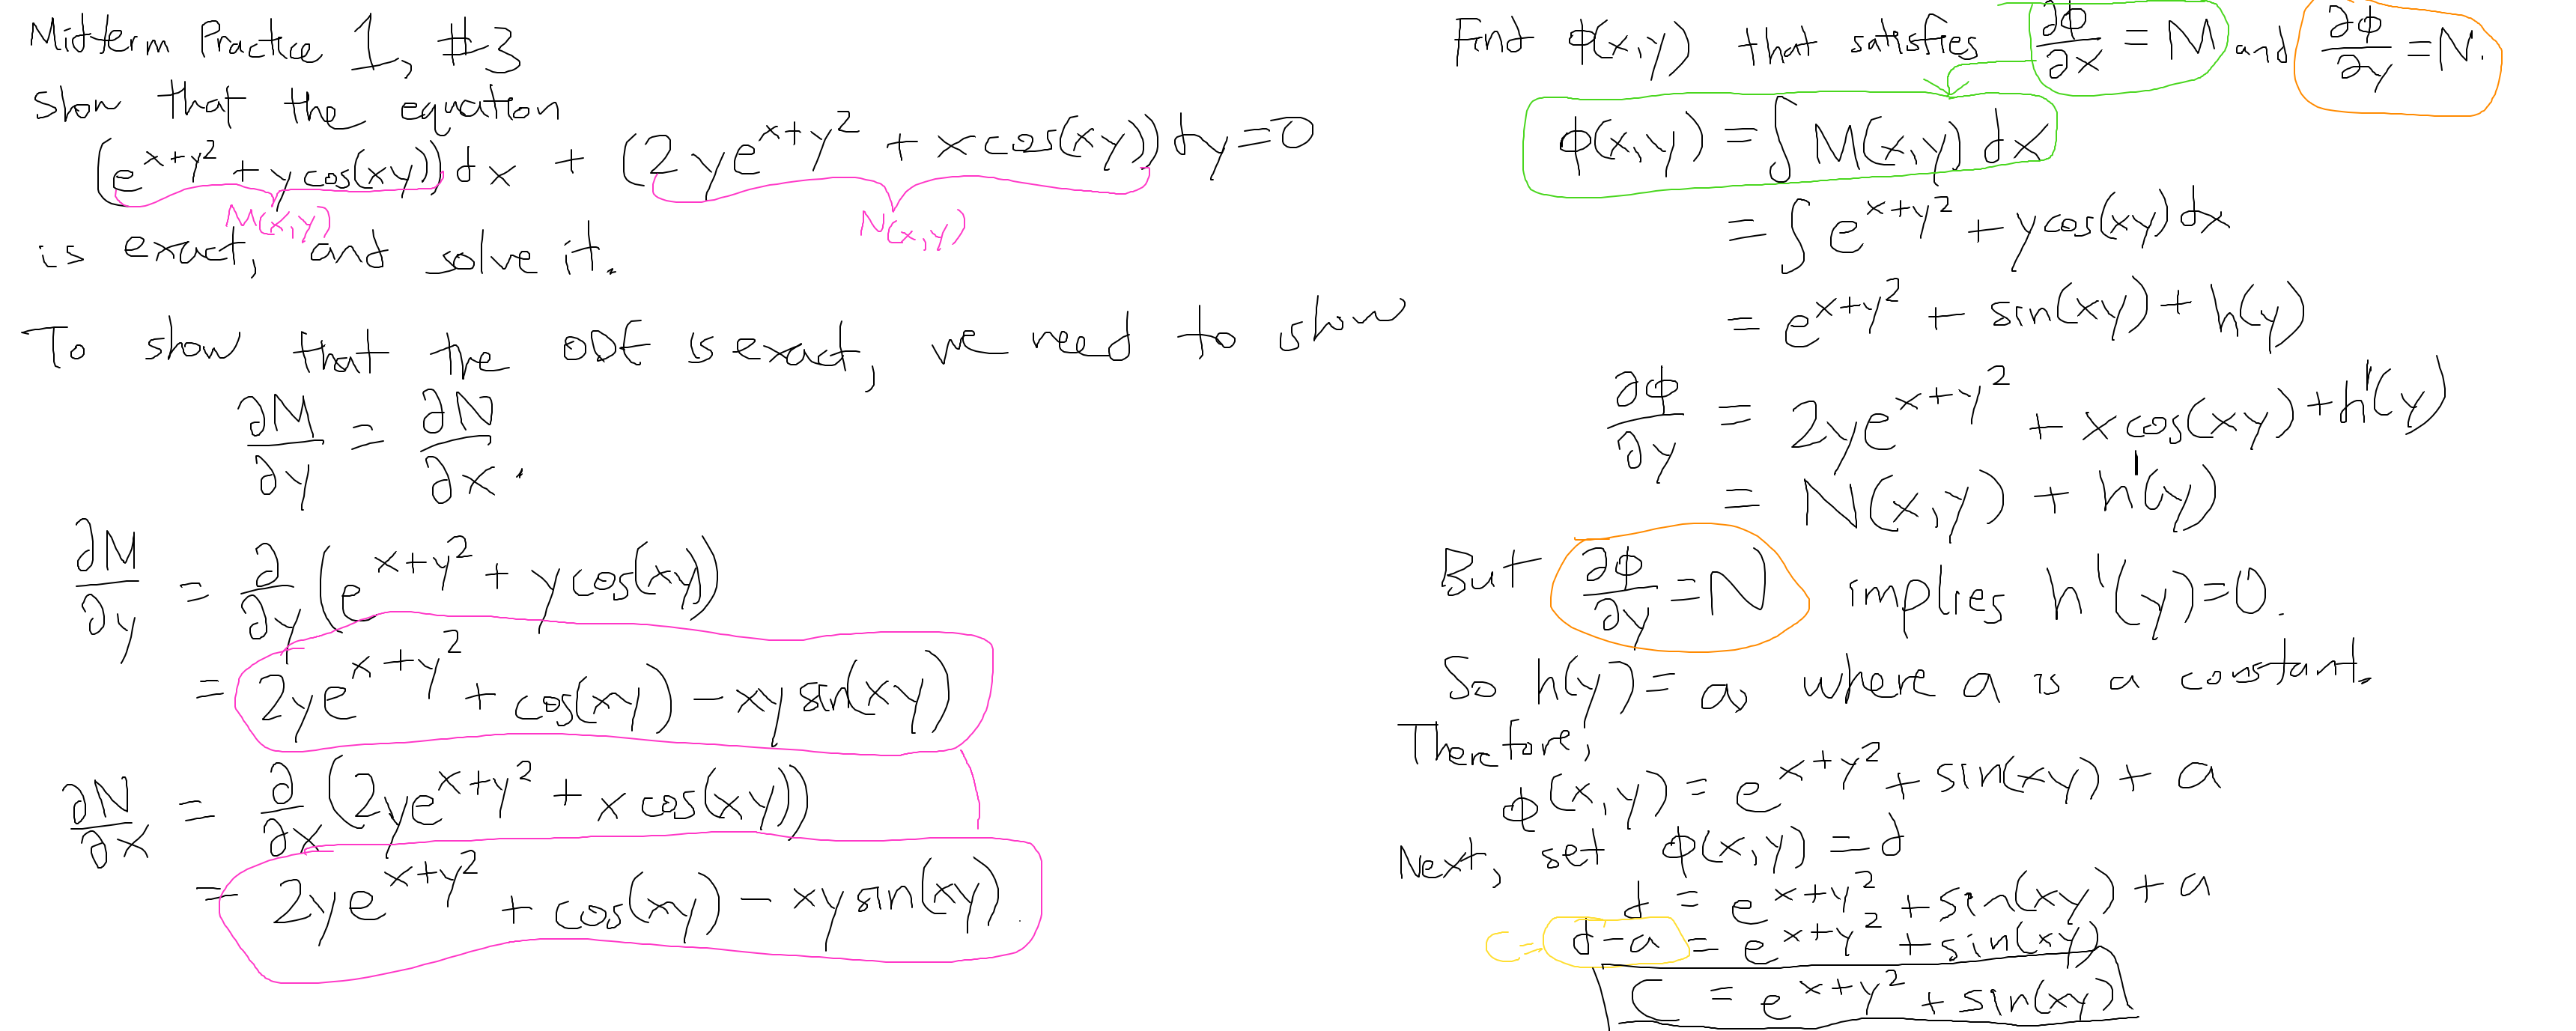 Midterm Practice 1, #3
Show that the equation
(e^{x+y^2} + y cos(xy)) dx + (2ye^{x+y^2} + x cos(xy)) dy = 0
M(x,y) N(x,y)
is exact, and solve it.
To show that the ODE is exact, we need to show
∂M/∂y = ∂N/∂x.
∂M/∂y = ∂/∂y (e^{x+y^2} + y cos(xy))
= 2ye^{x+y^2} + cos(xy) - xy sin(xy)
∂N/∂x = ∂/∂x (2ye^{x+y^2} + x cos(xy))
= 2ye^{x+y^2} + cos(xy) - xy sin(xy).
Find φ(x,y) that satisfies ∂φ/∂x = M and ∂φ/∂y = N.
φ(x,y) = ∫ M(x,y) dx
= ∫ e^{x+y^2} + y cos(xy) dx
= e^{x+y^2} + sin(xy) + h(y)
∂φ/∂y = 2ye^{x+y^2} + x cos(xy) + h'(y)
= N(x,y) + h'(y)
But ∂φ/∂y = N implies h'(y) = 0.
So h(y) = a, where a is a constant.
Therefore,
φ(x,y) = e^{x+y^2} + sin(xy) + a
Next, set φ(x,y) = d
d = e^{x+y^2} + sin(xy) + a
C = d - a = e^{x+y^2} + sin(xy)
C = e^{x+y^2} + sin(xy)